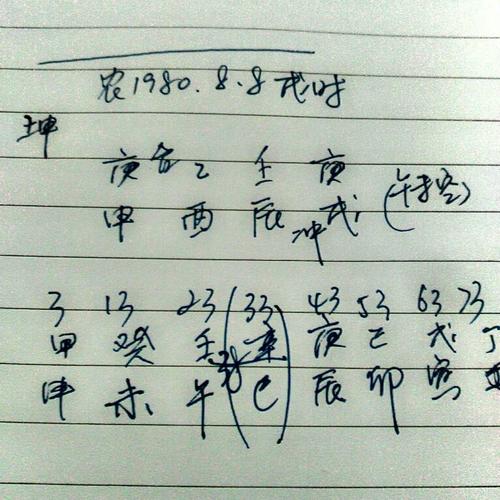 农1980.8.8戌时
坤
庚合乙 壬 庚
申 酉 辰冲戌 (午未空)
3 13 23 (33) 43 53 63 73
甲 癸 壬 辛 庚 己 戊 丁
申 未 午 巳 辰 卯 寅